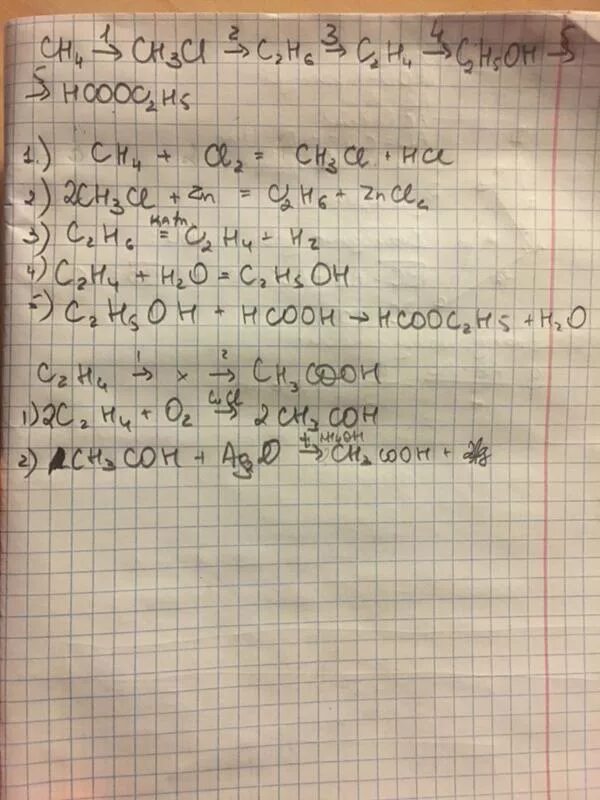 CH₄ →¹ CH₃Cl →² C₂H₆ →³ C₂H₄ →⁴ C₂H₅OH →⁵
→⁵ HCOOC₂H₅
1.) CH₄ + Cl₂ = CH₃Cl + HCl
2) 2CH₃Cl + Zn = C₂H₆ + ZnCl₂
3) C₂H₆ =ᵏᵃᵗ C₂H₄ + H₂
4) C₂H₄ + H₂O = C₂H₅OH
5) C₂H₅OH + HCOOH → HCOOC₂H₅ + H₂O
C₂H₄ →¹ x →² CH₃COOH
1) 2C₂H₄ + O₂ →ᶜᵘᶜˡ 2CH₃COH
2) CH₃COH + Ag₂O → CH₃COOH +